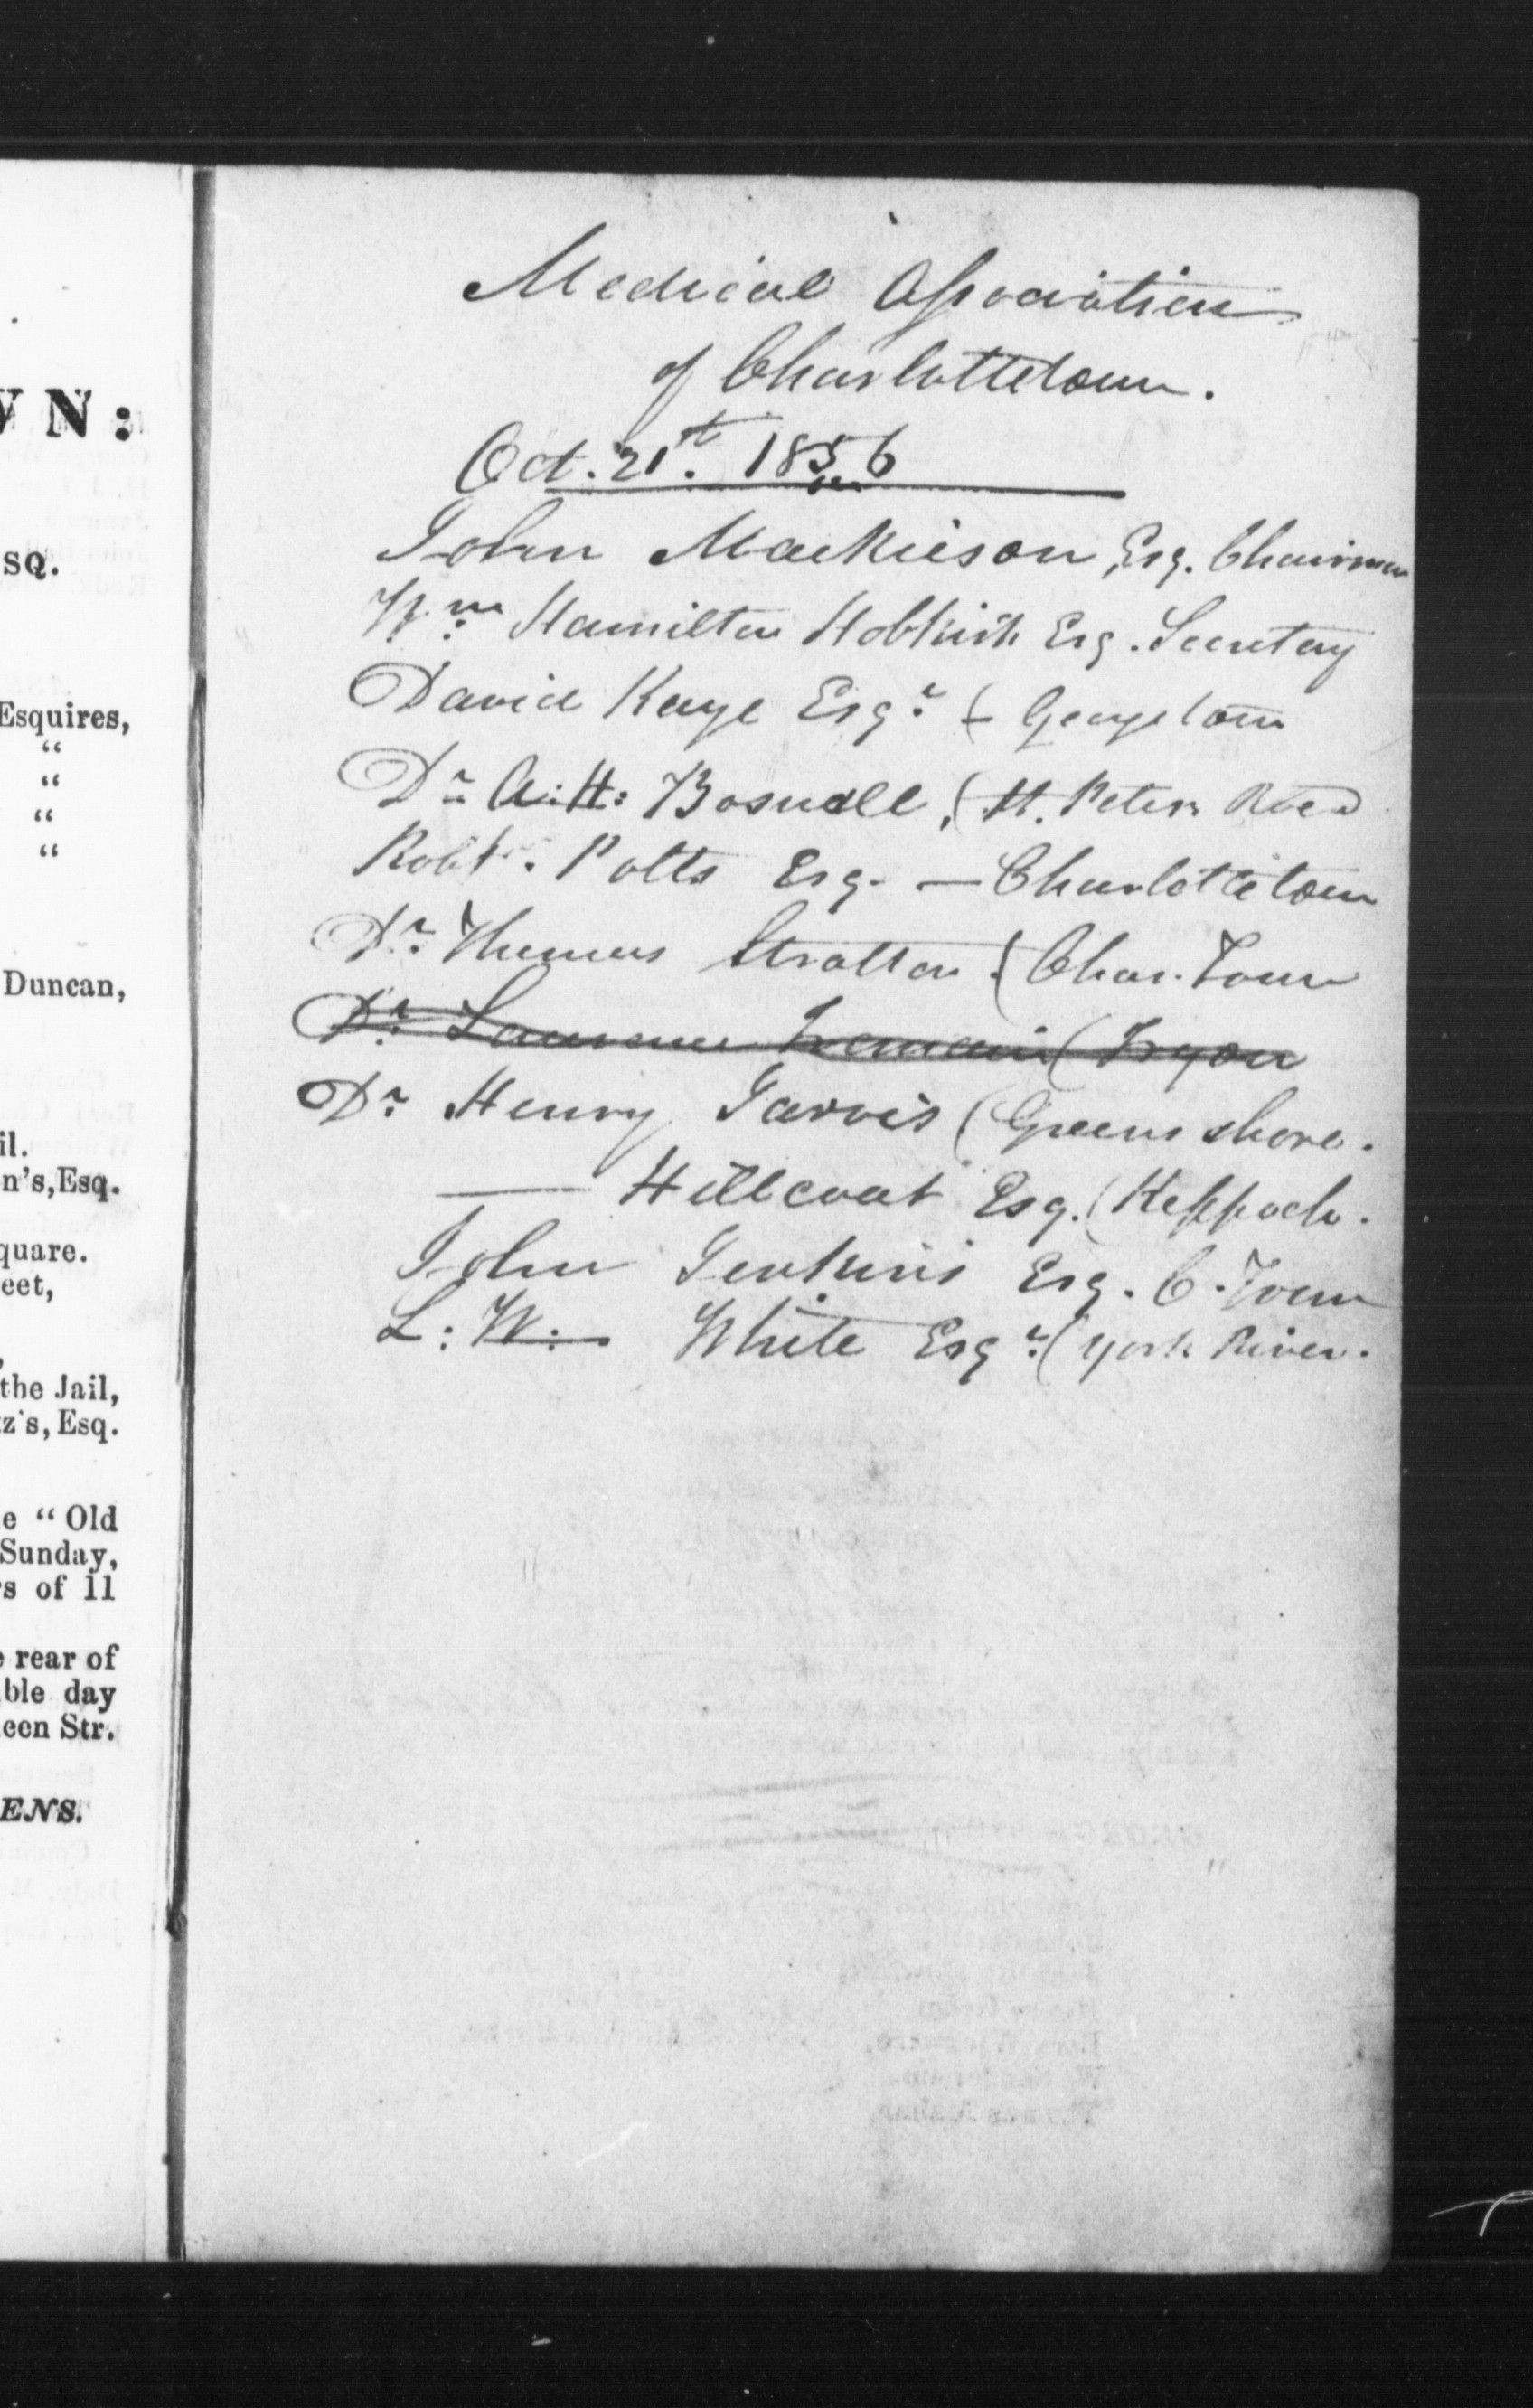 VN:
SQ.
Esquires,
“
“
“
“
Duncan,
il.
n's, Esq.
quare.
eet,
the Jail,
z's, Esq.
e “Old
Sunday,
s of 11
rear of
ble day
een Str.
ENS.
Medical Association
of Charlottetown.
Oct. 21st. 1856
John Mackieson, Esq. Chairman
Wm. Hamilton Hobkirk Esq. Secretary
David Kaye Esqr. ( Georgetown
Dr A: H: Boswall, (St. Peters Road
Robt. Potts Esq. — Charlottetown
Dr. Thomas Stratton ( Char. Town
Dr. (Tryon
Dr. Henry Jarvis (Greens shore.
—— Hillcoat Esq. (Keppoch.
John Jenkins Esq. C. Town
L: W. White Esqr. (York River.